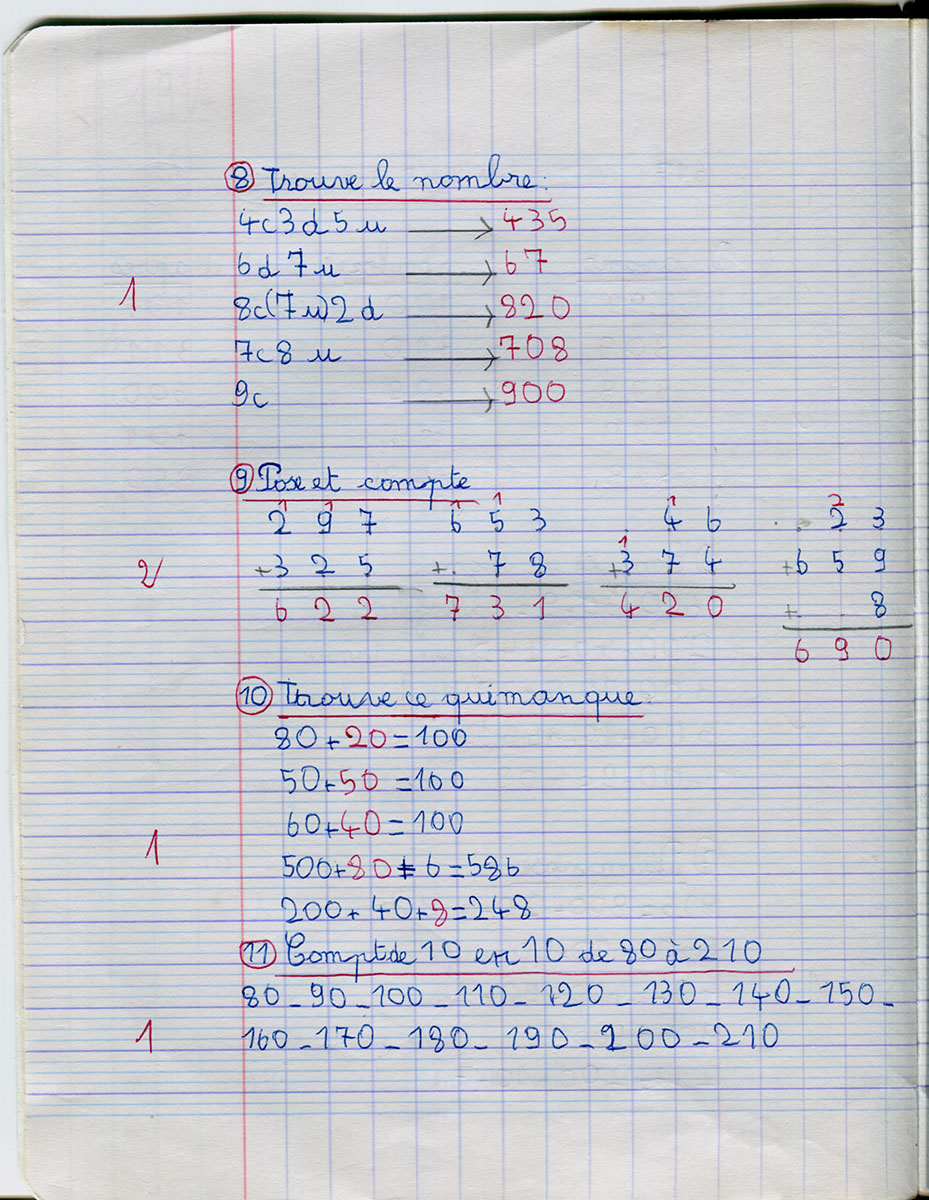 8 Trouve le nombre:
4c3d5u → 435
6d7u → 67
1
8c(7u)2d → 820
7c8u → 708
9c → 900
9 Pose et compte
1 1 1 1 2
2 9 7 6 5 3 . 4 6 . . 2 3
1
+3 2 5 +. 7 8 +3 7 4 +6 5 9
2
+. 8
6 2 2 7 3 1 4 2 0
6 9 0
10 Trouve ce quimanque
80+20=100
50+50=100
60+40=100
1
500+80+6=586
200+40+8=248
11 Comptde 10 en 10 de 80 à 210
80-90-100-110-120-130-140-150-
1 160-170-180-190-200-210